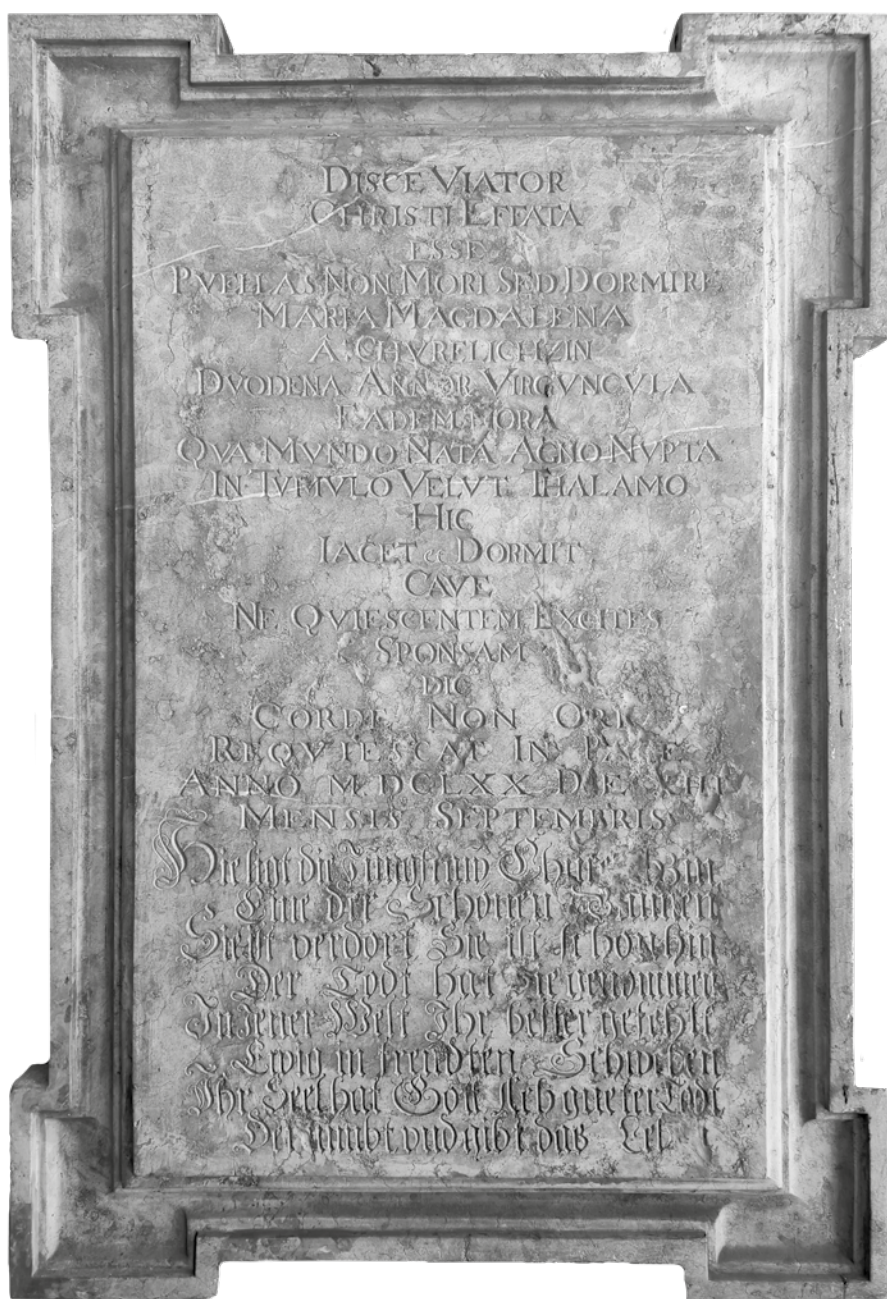 DISCE VIATOR
CHRISTI EFFATA
ESSE
PVELLAS NON MORI SED DORMIRE
MARIA MAGDALENA
A CHVRELICHZIN
DVODENA ANNOR VIRGVNCVLA
EADEM HORA
QVA MVNDO NATA AGNO NVPTA
IN TVMVLO VELVT THALAMO
HIC
IACET et DORMIT
CAVE
NE QVIESCENTEM EXCITES
SPONSAM
DIC
CORDE NON ORE
REQVIESCAT IN PACE
ANNO M.DCLXX DIE XIII
MENSIS SEPTEMBRIS
Hie ligt die Jungfrauw
Eine der Schönen
Sie ist verdort Sie ist schon hin
Der Todt hat Sie genommen
In Jener Welt Ihr besser gefehlt
Ewig in freudten Schweben
Ihr Seel hat Gott
Der nimbt vnd gibt das